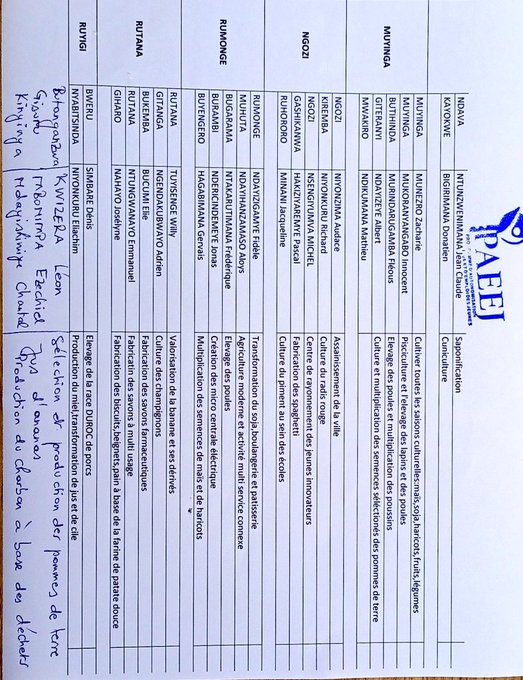 PAEEJ
NDAVA NTUNZWENIMANA Jean Claude Saponification
KAYOKWE BIGIRIMANA Donatien Cuniculture
MUYINGA
MUYINGA MUNEZRO Zacharie Cultiver toutes les saisons culturelles:maïs,soja,haricots,fruits,légumes
MUYINGA MUKORANYANGABO Innocent Pisciculture et l'elevage des lapins et des poules
BUTIHINDA MURINDARUGAMBA Fléous Elevage des poules et multiplication des poussins
GITERANYI NDAYIZEYE Albert Culture et multiplication des semences sélectionés des pommes de terre
MWAKIRO NDIKUMANA Mathieu
NGOZI
NGOZI NIYONZIMA Audace Assainissement de la ville
KIREMBA NIYONKURU Richard Culture du radis rouge
NGOZI NSENGIYUMVA MICHEL Centre de rayonnement des jeunes innovateurs
GASHIKANWA HAKIZIYAREMYE Pascal Fabrication des spaghetti
RUHORORO MINANI Jacqueline Culture du piment au sein des écoles
RUMONGE
RUMONGE NDAYIZIGAMYE Fidèle Transformation du soja,boulangerie et patisserie
MUHUTA NDAYIHANZAMASO Aloys Agriculture moderne et activité multi service connexe
BUGARAMA NTAKARUTIMANA Frédérique Elevage des poules
BURAMBI NDERICINDEMEYE Jonas Création des micro centrale éléctrique
BUYENGERO HAGABIMANA Gervais Multiplication des semences de maïs et de haricots
RUTANA
RUTANA TUYISENGE Willy Valorisation de la banane et ses dérivés
GITANGA NGENDAKUBWAYO Adrien Culture des champignons
BUKEMBA BUCUMI Elie Fabrication des savons farmaceutiques
RUTANA NTUNGWANAYO Emmanuel Fabricatin des savons à multi usage
GIHARO NAHAYO Joselyne Fabrication des biscuits,beignets,pain à base de la farine de patate douce
RUYIGI
BWERU SIMBARE Dénis Elevage de la race DUROC de porcs
NYABITSINDA NIYONKURU Eliachim Production du miel,transformation de jus et de cile
Butaganzwa KWIZERA Léon Sélection et production des pommes de terre
Gisuru Ezechiel Jus d'ananas
Kinyinya Ndayishimiye Chantal Production du charbon à base des déchets